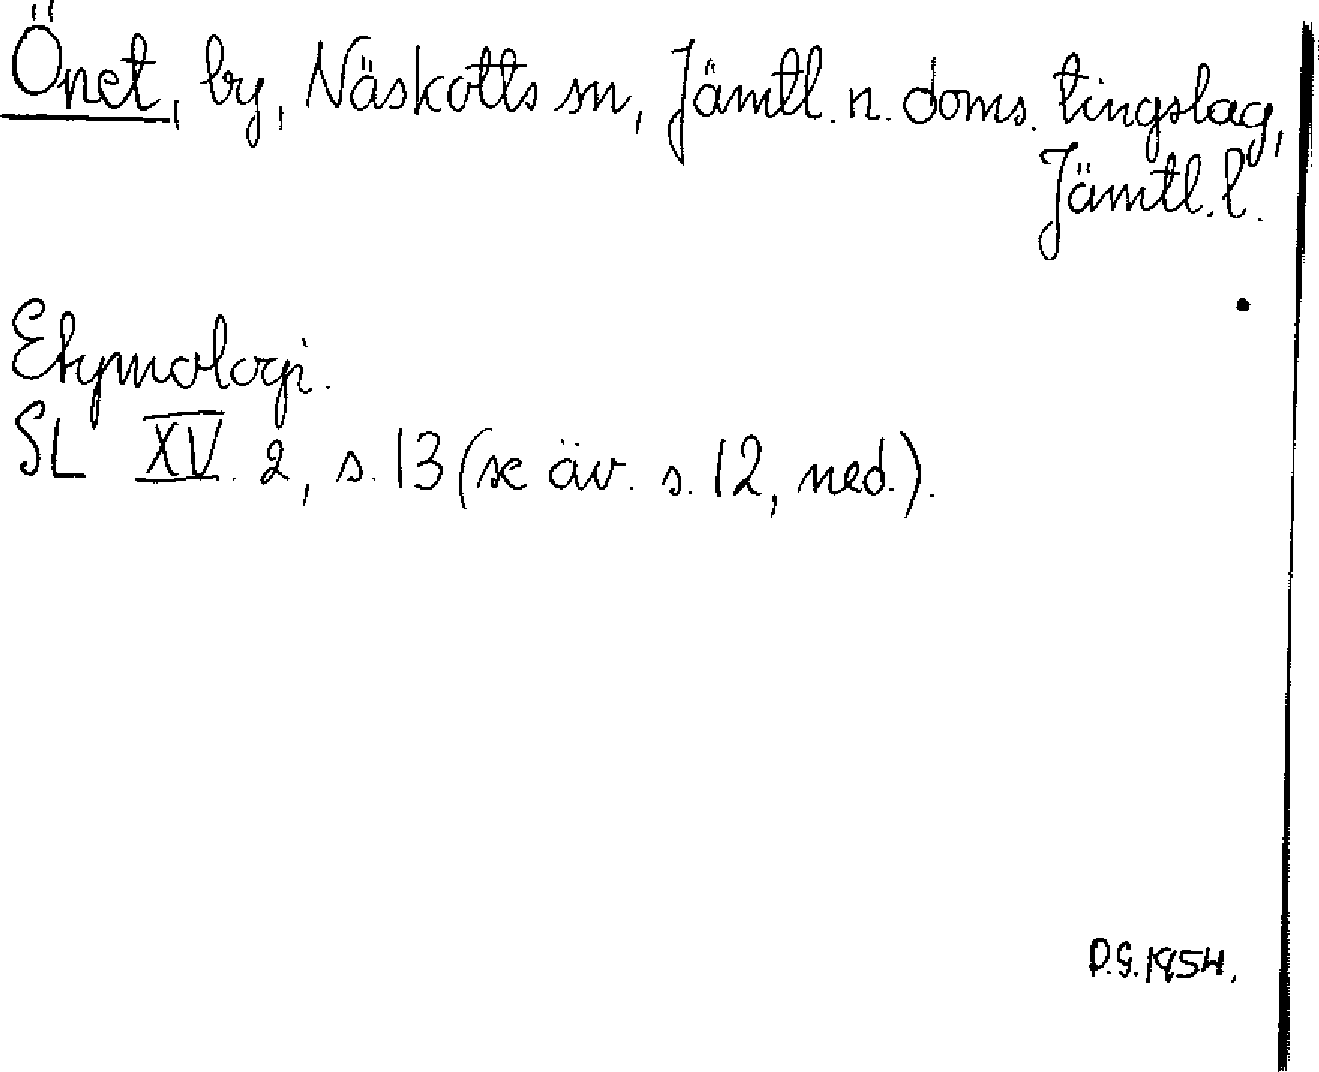 Önet, by, Näskotts sn, Jämtl. n. doms. tingslag,
Jämtl. l.
Etymologi.
SL XV. 2, s. 13 (se äv. s. 12, ned.).
D.G. 1954.